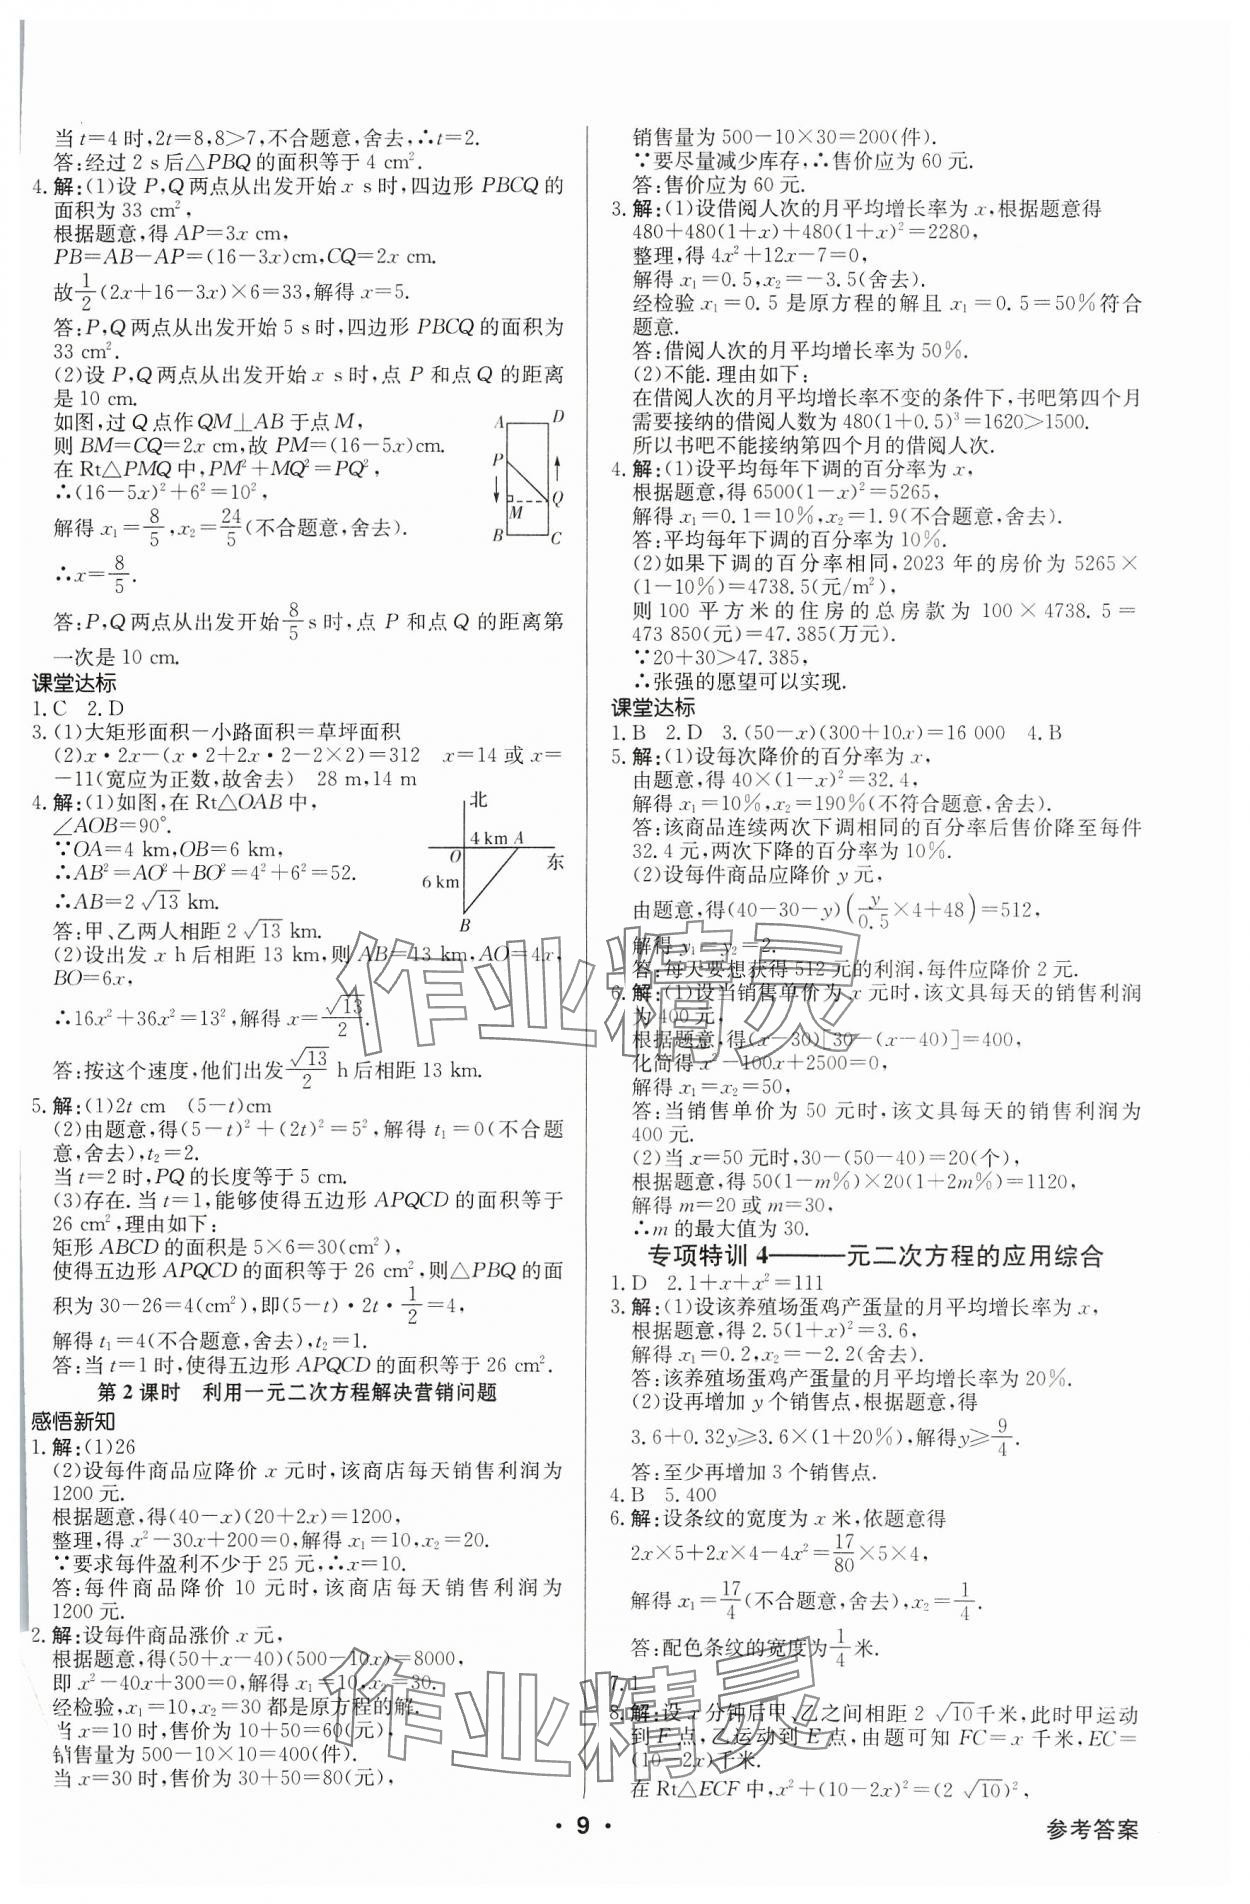 当t=4时,2t=8,8>7,不合题意,舍去,∴t=2.
答:经过2 s后△PBQ的面积等于4 cm².
4.解:(1)设P,Q两点从出发开始x s时,四边形PBCQ的
面积为33 cm²,
根据题意,得AP=3x cm,
PB=AB-AP=(16-3x)cm,CQ=2x cm.
故1/2(2x+16-3x)×6=33,解得x=5.
答:P,Q两点从出发开始5 s时,四边形PBCQ的面积为
33 cm².
(2)设P,Q两点从出发开始x s时,点P和点Q的距离
是10 cm.
如图,过Q点作QM⊥AB于点M,
则BM=CQ=2x cm,故PM=(16-5x)cm.
在Rt△PMQ中,PM²+MQ²=PQ²,
∴(16-5x)²+6²=10²,
解得x₁=8/5,x₂=24/5(不合题意,舍去).
∴x=8/5.
A D
P
Q
M
B C
答:P,Q两点从出发开始8/5 s时,点P和点Q的距离第
一次是10 cm.
课堂达标
1.C 2.D
3.(1)大矩形面积-小路面积=草坪面积
(2)x·2x-(x·2+2x·2-2×2)=312 x=14或x=
-11(宽应为正数,故舍去) 28 m,14 m
4.解:(1)如图,在Rt△OAB中,
∠AOB=90°.
∵OA=4 km,OB=6 km,
∴AB²=AO²+BO²=4²+6²=52.
∴AB=2√13 km.
北
4 km A
O 东
6 km
B
答:甲、乙两人相距2√13 km.
(2)设出发x h后相距13 km,则AB=13 km,AO=4x,
BO=6x,
∴16x²+36x²=13²,解得x=√13/2.
答:按这个速度,他们出发√13/2 h后相距13 km.
5.解:(1)2t cm (5-t)cm
(2)由题意,得(5-t)²+(2t)²=5²,解得t₁=0(不合题
意,舍去),t₂=2.
当t=2时,PQ的长度等于5 cm.
(3)存在.当t=1,能够使得五边形APQCD的面积等于
26 cm²,理由如下:
矩形ABCD的面积是5×6=30(cm²),
使得五边形APQCD的面积等于26 cm²,则△PBQ的面
积为30-26=4(cm²),即(5-t)·2t·1/2=4,
解得t₁=4(不合题意,舍去),t₂=1.
答:当t=1时,使得五边形APQCD的面积等于26 cm².
第2课时 利用一元二次方程解决营销问题
感悟新知
1.解:(1)26
(2)设每件商品应降价x元时,该商店每天销售利润为
1200元.
根据题意,得(40-x)(20+2x)=1200,
整理,得x²-30x+200=0,解得x₁=10,x₂=20.
∵要求每件盈利不少于25元,∴x=10.
答:每件商品降价10元时,该商店每天销售利润为
1200元.
2.解:设每件商品涨价x元,
根据题意,得(50+x-40)(500-10x)=8000,
即x²-40x+300=0,解得x₁=10,x₂=30.
经检验,x₁=10,x₂=30都是原方程的解.
当x=10时,售价为10+50=60(元),
销售量为500-10×10=400(件).
当x=30时,售价为30+50=80(元),
销售量为500-10×30=200(件).
∵要尽量减少库存,∴售价应为60元.
答:售价应为60元.
3.解:(1)设借阅人次的月平均增长率为x,根据题意得
480+480(1+x)+480(1+x)²=2280,
整理,得4x²+12x-7=0,
解得x₁=0.5,x₂=-3.5(舍去).
经检验x₁=0.5是原方程的解且x₁=0.5=50%符合
题意.
答:借阅人次的月平均增长率为50%.
(2)不能.理由如下:
在借阅人次的月平均增长率不变的条件下,书吧第四个月
需要接纳的借阅人数为480(1+0.5)³=1620>1500.
所以书吧不能接纳第四个月的借阅人次.
4.解:(1)设平均每年下调的百分率为x,
根据题意,得6500(1-x)²=5265,
解得x₁=0.1=10%,x₂=1.9(不合题意,舍去).
答:平均每年下调的百分率为10%.
(2)如果下调的百分率相同,2023年的房价为5265×
(1-10%)=4738.5(元/m²),
则100平方米的住房的总房款为100×4738.5=
473 850(元)=47.385(万元).
∵20+30>47.385,
∴张强的愿望可以实现.
课堂达标
1.B 2.D 3.(50-x)(300+10x)=16 000 4.B
5.解:(1)设每次降价的百分率为x,
由题意,得40×(1-x)²=32.4,
解得x₁=10%,x₂=190%(不符合题意,舍去).
答:该商品连续两次下调相同的百分率后售价降至每件
32.4元,两次下降的百分率为10%.
(2)设每件商品应降价y元,
由题意,得(40-30-y)(y/0.5×4+48)=512,
解得y₁=y₂=2.
答:每天要想获得512元的利润,每件应降价2元.
6.解:(1)设当销售单价为x元时,该文具每天的销售利润
为400元.
根据题意,得(x-30)[30-(x-40)]=400,
化简得x²-100x+2500=0,
解得x₁=x₂=50,
答:当销售单价为50元时,该文具每天的销售利润为
400元.
(2)当x=50元时,30-(50-40)=20(个),
根据题意,得50(1-m%)×20(1+2m%)=1120,
解得m=20或m=30,
∴m的最大值为30.
专项特训4——一元二次方程的应用综合
1.D 2.1+x+x²=111
3.解:(1)设该养殖场蛋鸡产蛋量的月平均增长率为x,
根据题意,得2.5(1+x)²=3.6,
解得x₁=0.2,x₂=-2.2(舍去).
答:该养殖场蛋鸡产蛋量的月平均增长率为20%.
(2)设再增加y个销售点,根据题意,得
3.6+0.32y≥3.6×(1+20%),解得y≥9/4.
答:至少再增加3个销售点.
4.B 5.400
6.解:设条纹的宽度为x米,依题意得
2x×5+2x×4-4x²=17/80×5×4,
解得x₁=17/4(不合题意,舍去),x₂=1/4.
答:配色条纹的宽度为1/4米.
7.1
8.解:设x分钟后甲、乙之间相距2√10千米,此时甲运动
到F点,乙运动到E点,由题可知FC=x千米,EC=
(10-2x)千米.
在Rt△ECF中,x²+(10-2x)²=(2√10)²,
作业精灵
作业精灵
·9·
参考答案